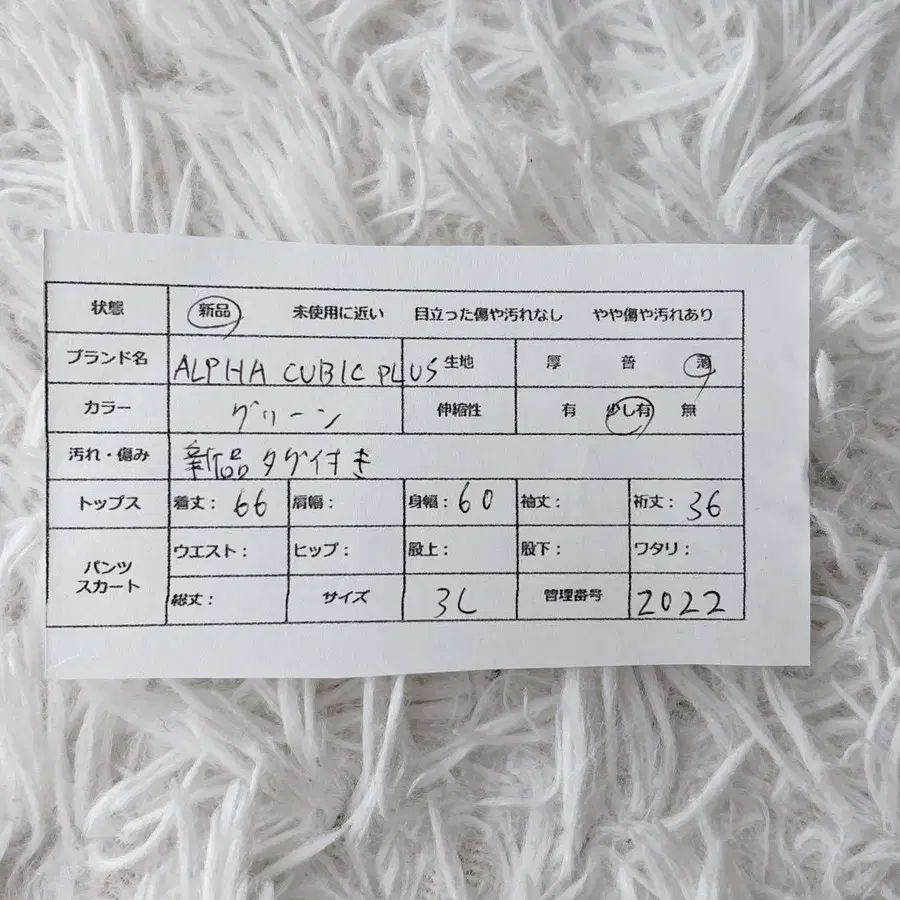 状態 新品 未使用に近い 目立った傷や汚れなし やや傷や汚れあり
ブランド名 ALPHA CUBIC PLUS 生地 厚 普 薄
カラー グリーン 伸縮性 有 少し有 無
汚れ・傷み 新品タグ付き
トップス 着丈: 66 肩幅: 身幅: 60 袖丈: 裄丈: 36
パンツ スカート ウエスト: ヒップ: 股上: 股下: ワタリ:
総丈: サイズ 3L 管理番号 2022